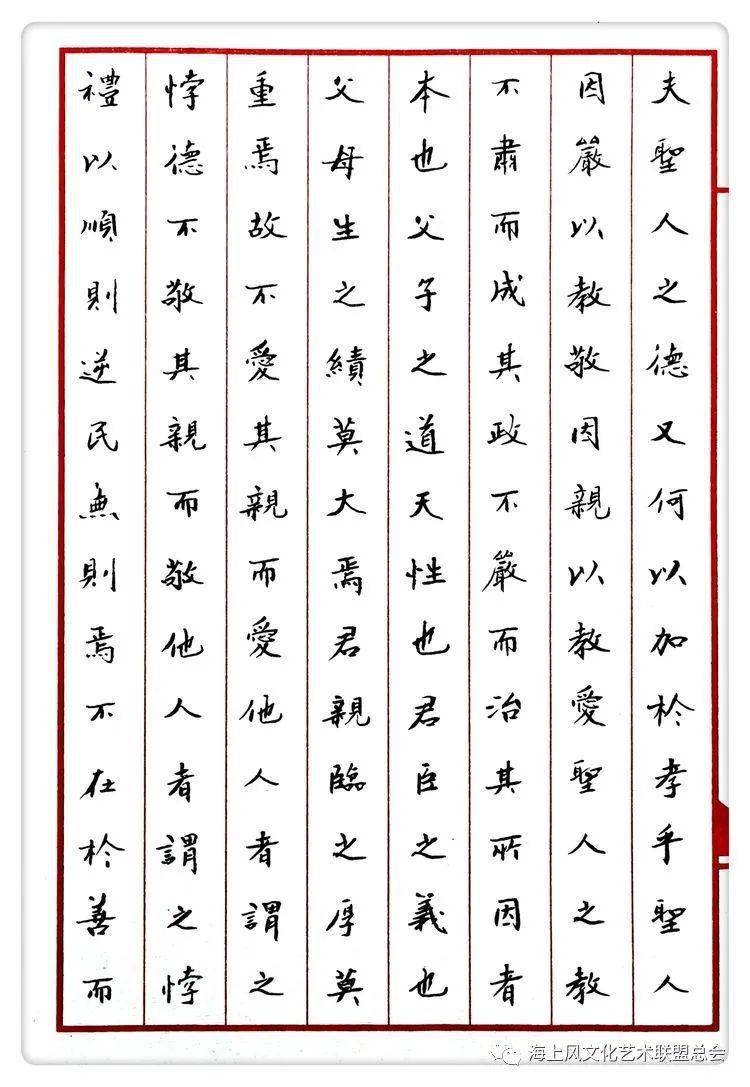 夫聖人之德又何以加於孝乎聖人
因嚴以教敬因親以教愛聖人之教
不肅而成其政不嚴而治其所因者
本也父子之道天性也君臣之義也
父母生之績莫大焉君親臨之厚莫
重焉故不愛其親而愛他人者謂之
悖德不敬其親而敬他人者謂之悖
禮以順則逆民無則焉不在於善而
海上风文化艺术联盟总会